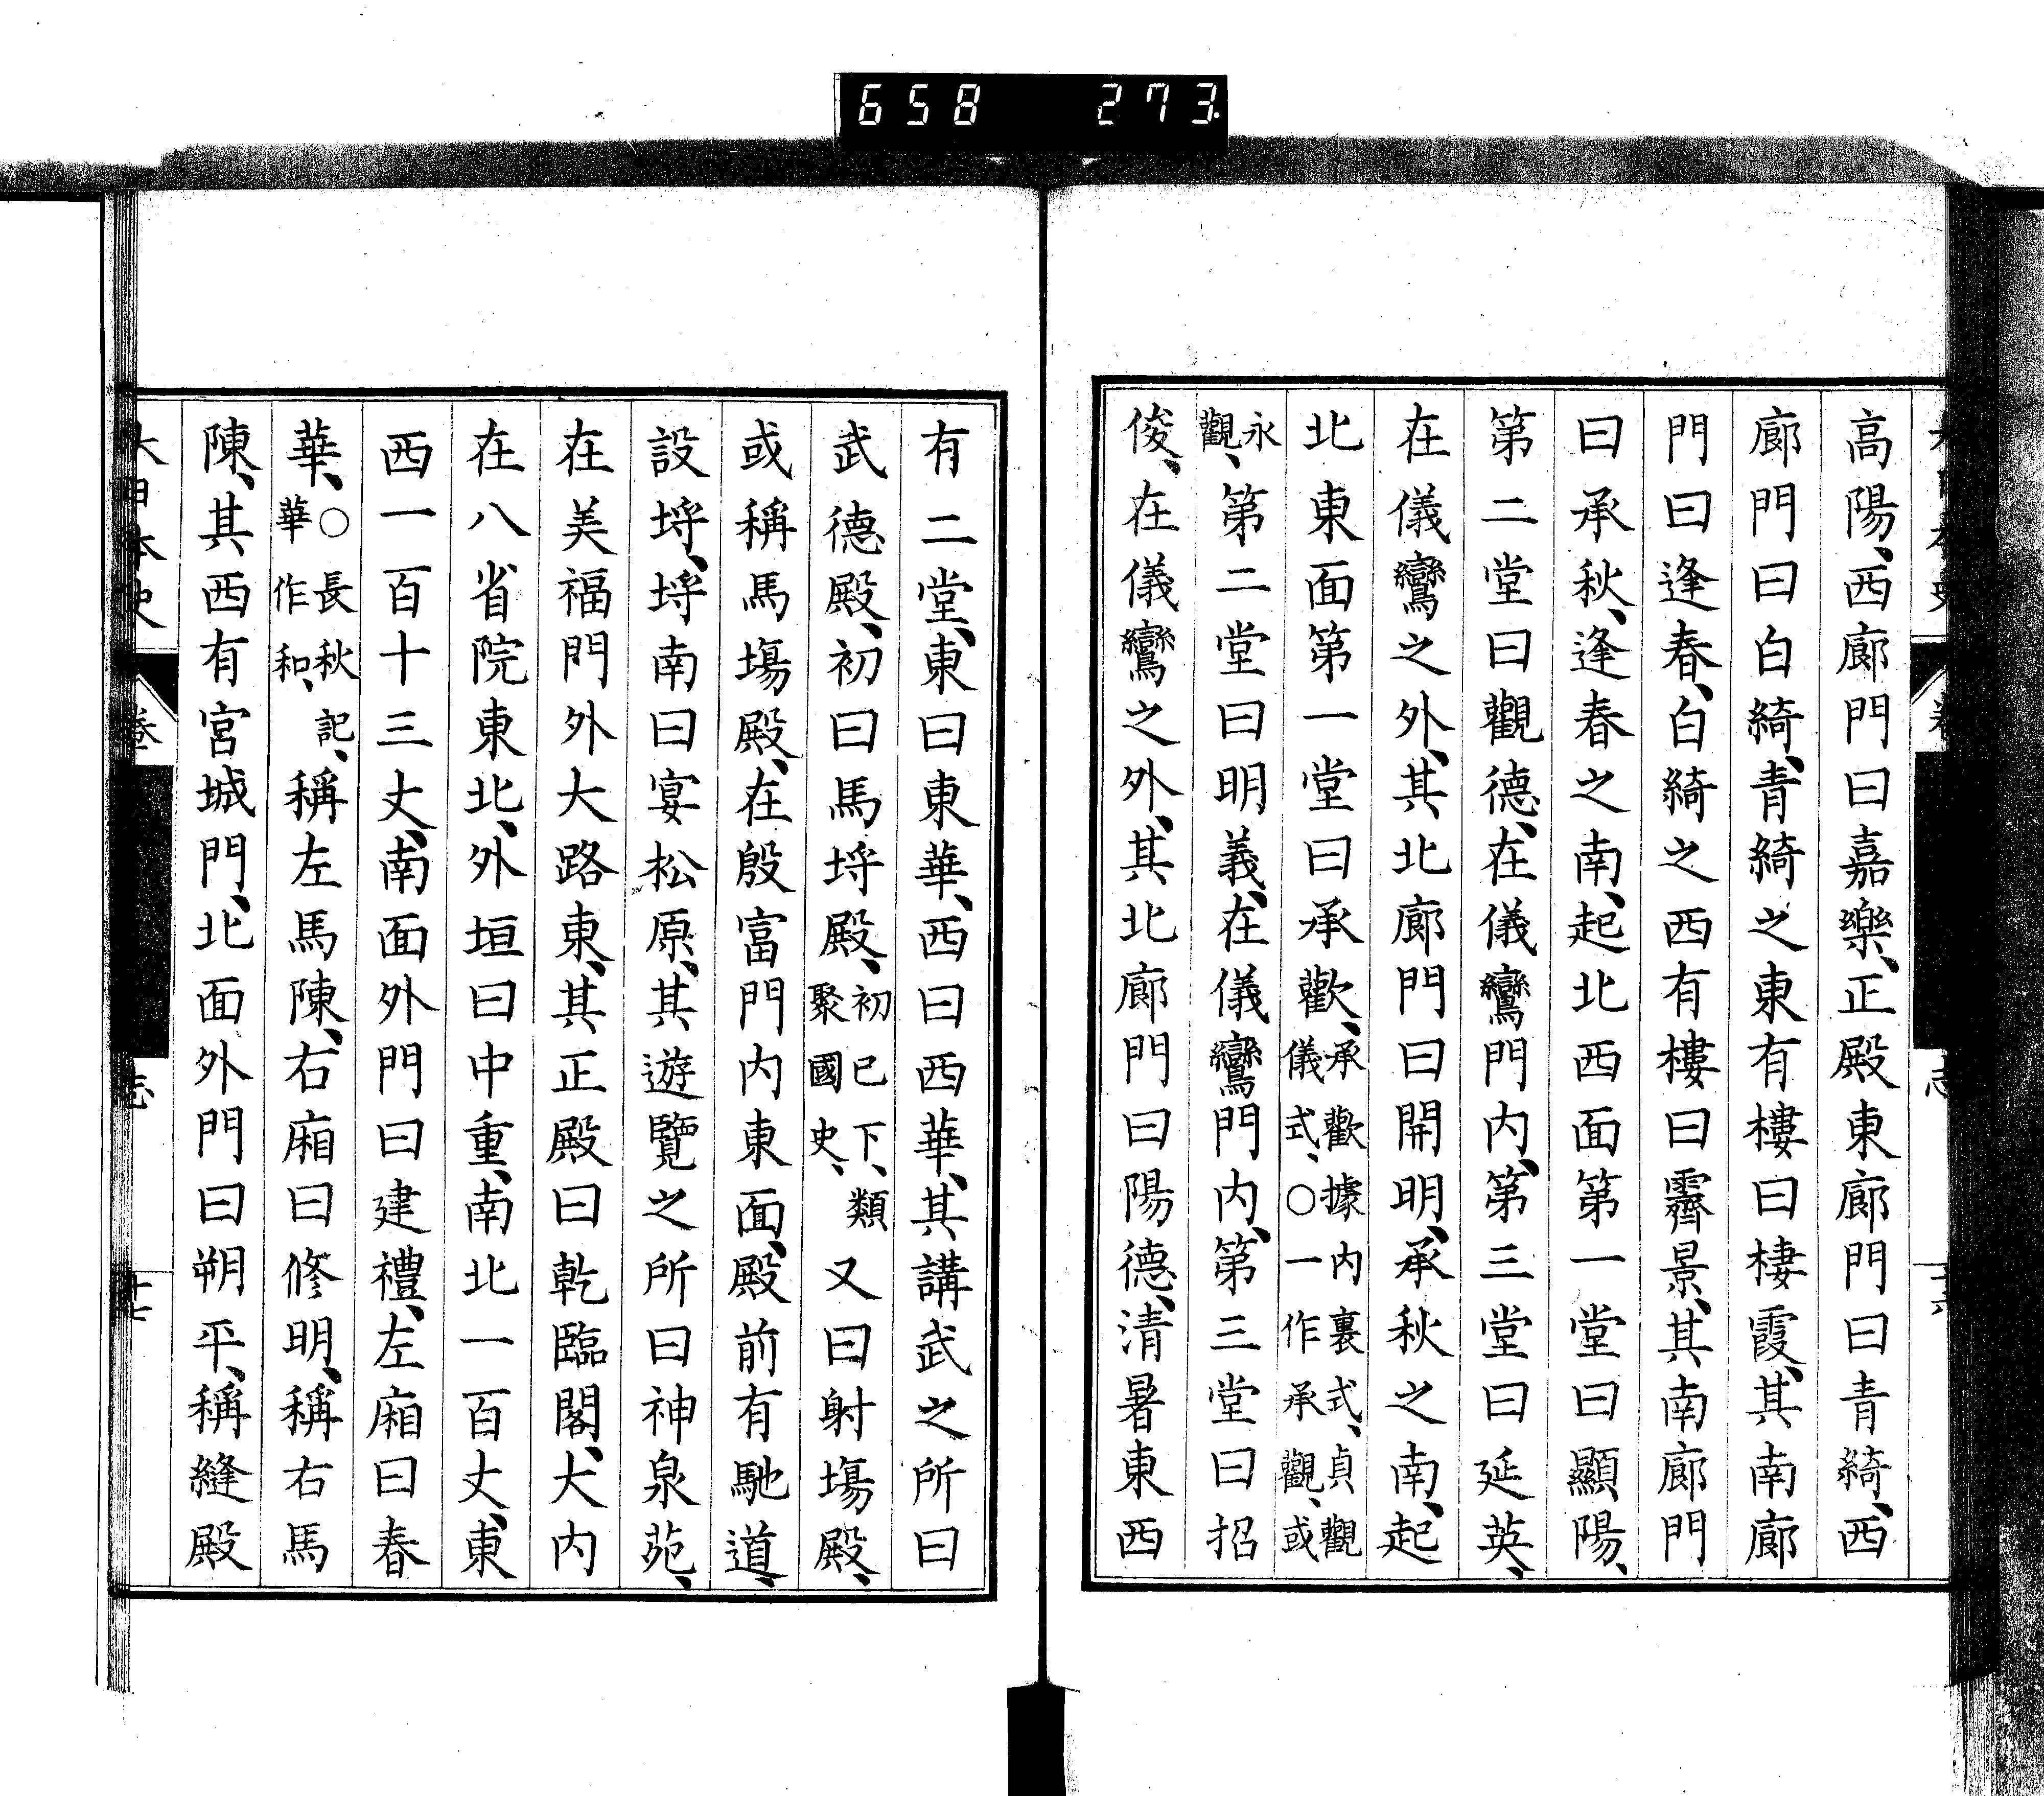 658 273
高陽、西廊門曰嘉樂、正殿東廊門曰青綺、西
廊門曰白綺、青綺之東有樓曰棲霞、其南廊
門曰逢春、白綺之西有樓曰霽景、其南廊門
曰承秋、逢春之南、起北西面第一堂曰顯陽、
第二堂曰觀德、在儀鸞門內、第三堂曰延英、
在儀鸞之外、其北廊門曰開明、承秋之南、起
北東面第一堂曰承歡、承歡據內裏式、貞觀儀式、○一作承觀、或
永觀、第二堂曰明義、在儀鸞門內、第三堂曰招
俊、在儀鸞之外、其北廊門曰陽德、清暑東西
有二堂、東曰東華、西曰西華、其講武之所曰
武德殿、初曰馬埒殿、初已下、類聚國史、又曰射場殿、
或稱馬場殿、在殷富門內東面、殿前有馳道、
設埒、埒南曰宴松原、其遊覽之所曰神泉苑、
在美福門外大路東、其正殿曰乾臨閣、大內
在八省院東北、外垣曰中重、南北一百丈、東
西一百十三丈、南面外門曰建禮、左廂曰春
華、○長秋記、華作和、稱左馬陳、右廂曰修明、稱右馬
陳、其西有宮城門、北面外門曰朔平、稱縫殿
大日本史 卷 志 十七